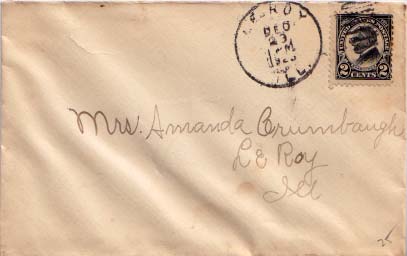 LE ROY
DEC
23
PM
1923
ILL.
UNITED STATES POSTAGE
2 CENTS 2
Mrs. Amanda Crumbaugh
Le Roy
Ill
25